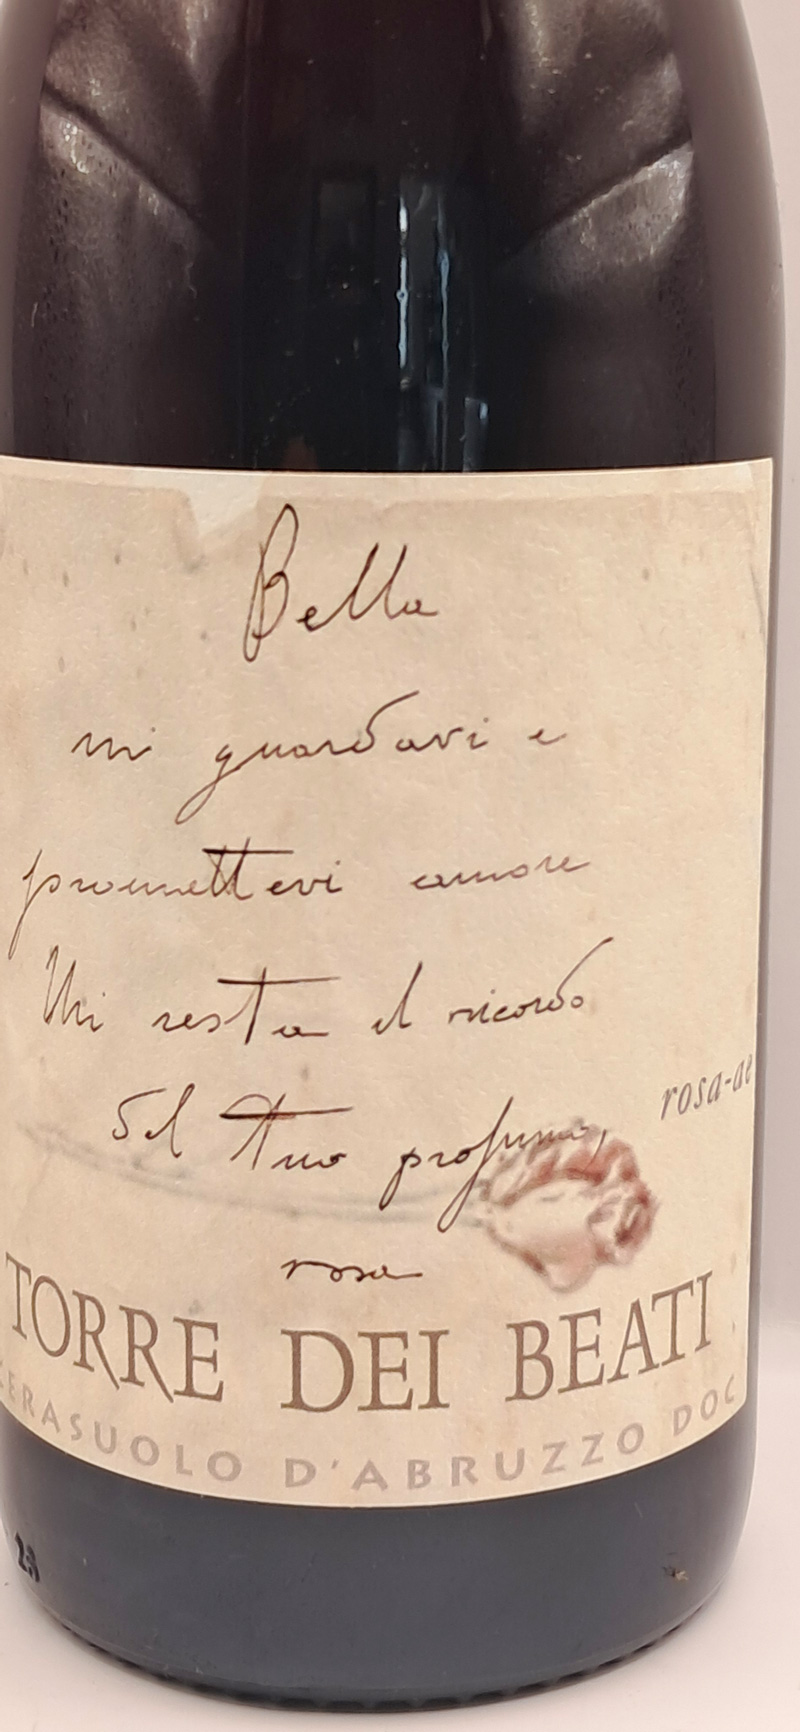 Bella
mi guardavi e
promettevi amore
Mi resta il ricordo
del tuo profumo,
rosa-ae
rosa
TORRE DEI BEATI
CERASUOLO D'ABRUZZO DOC
23